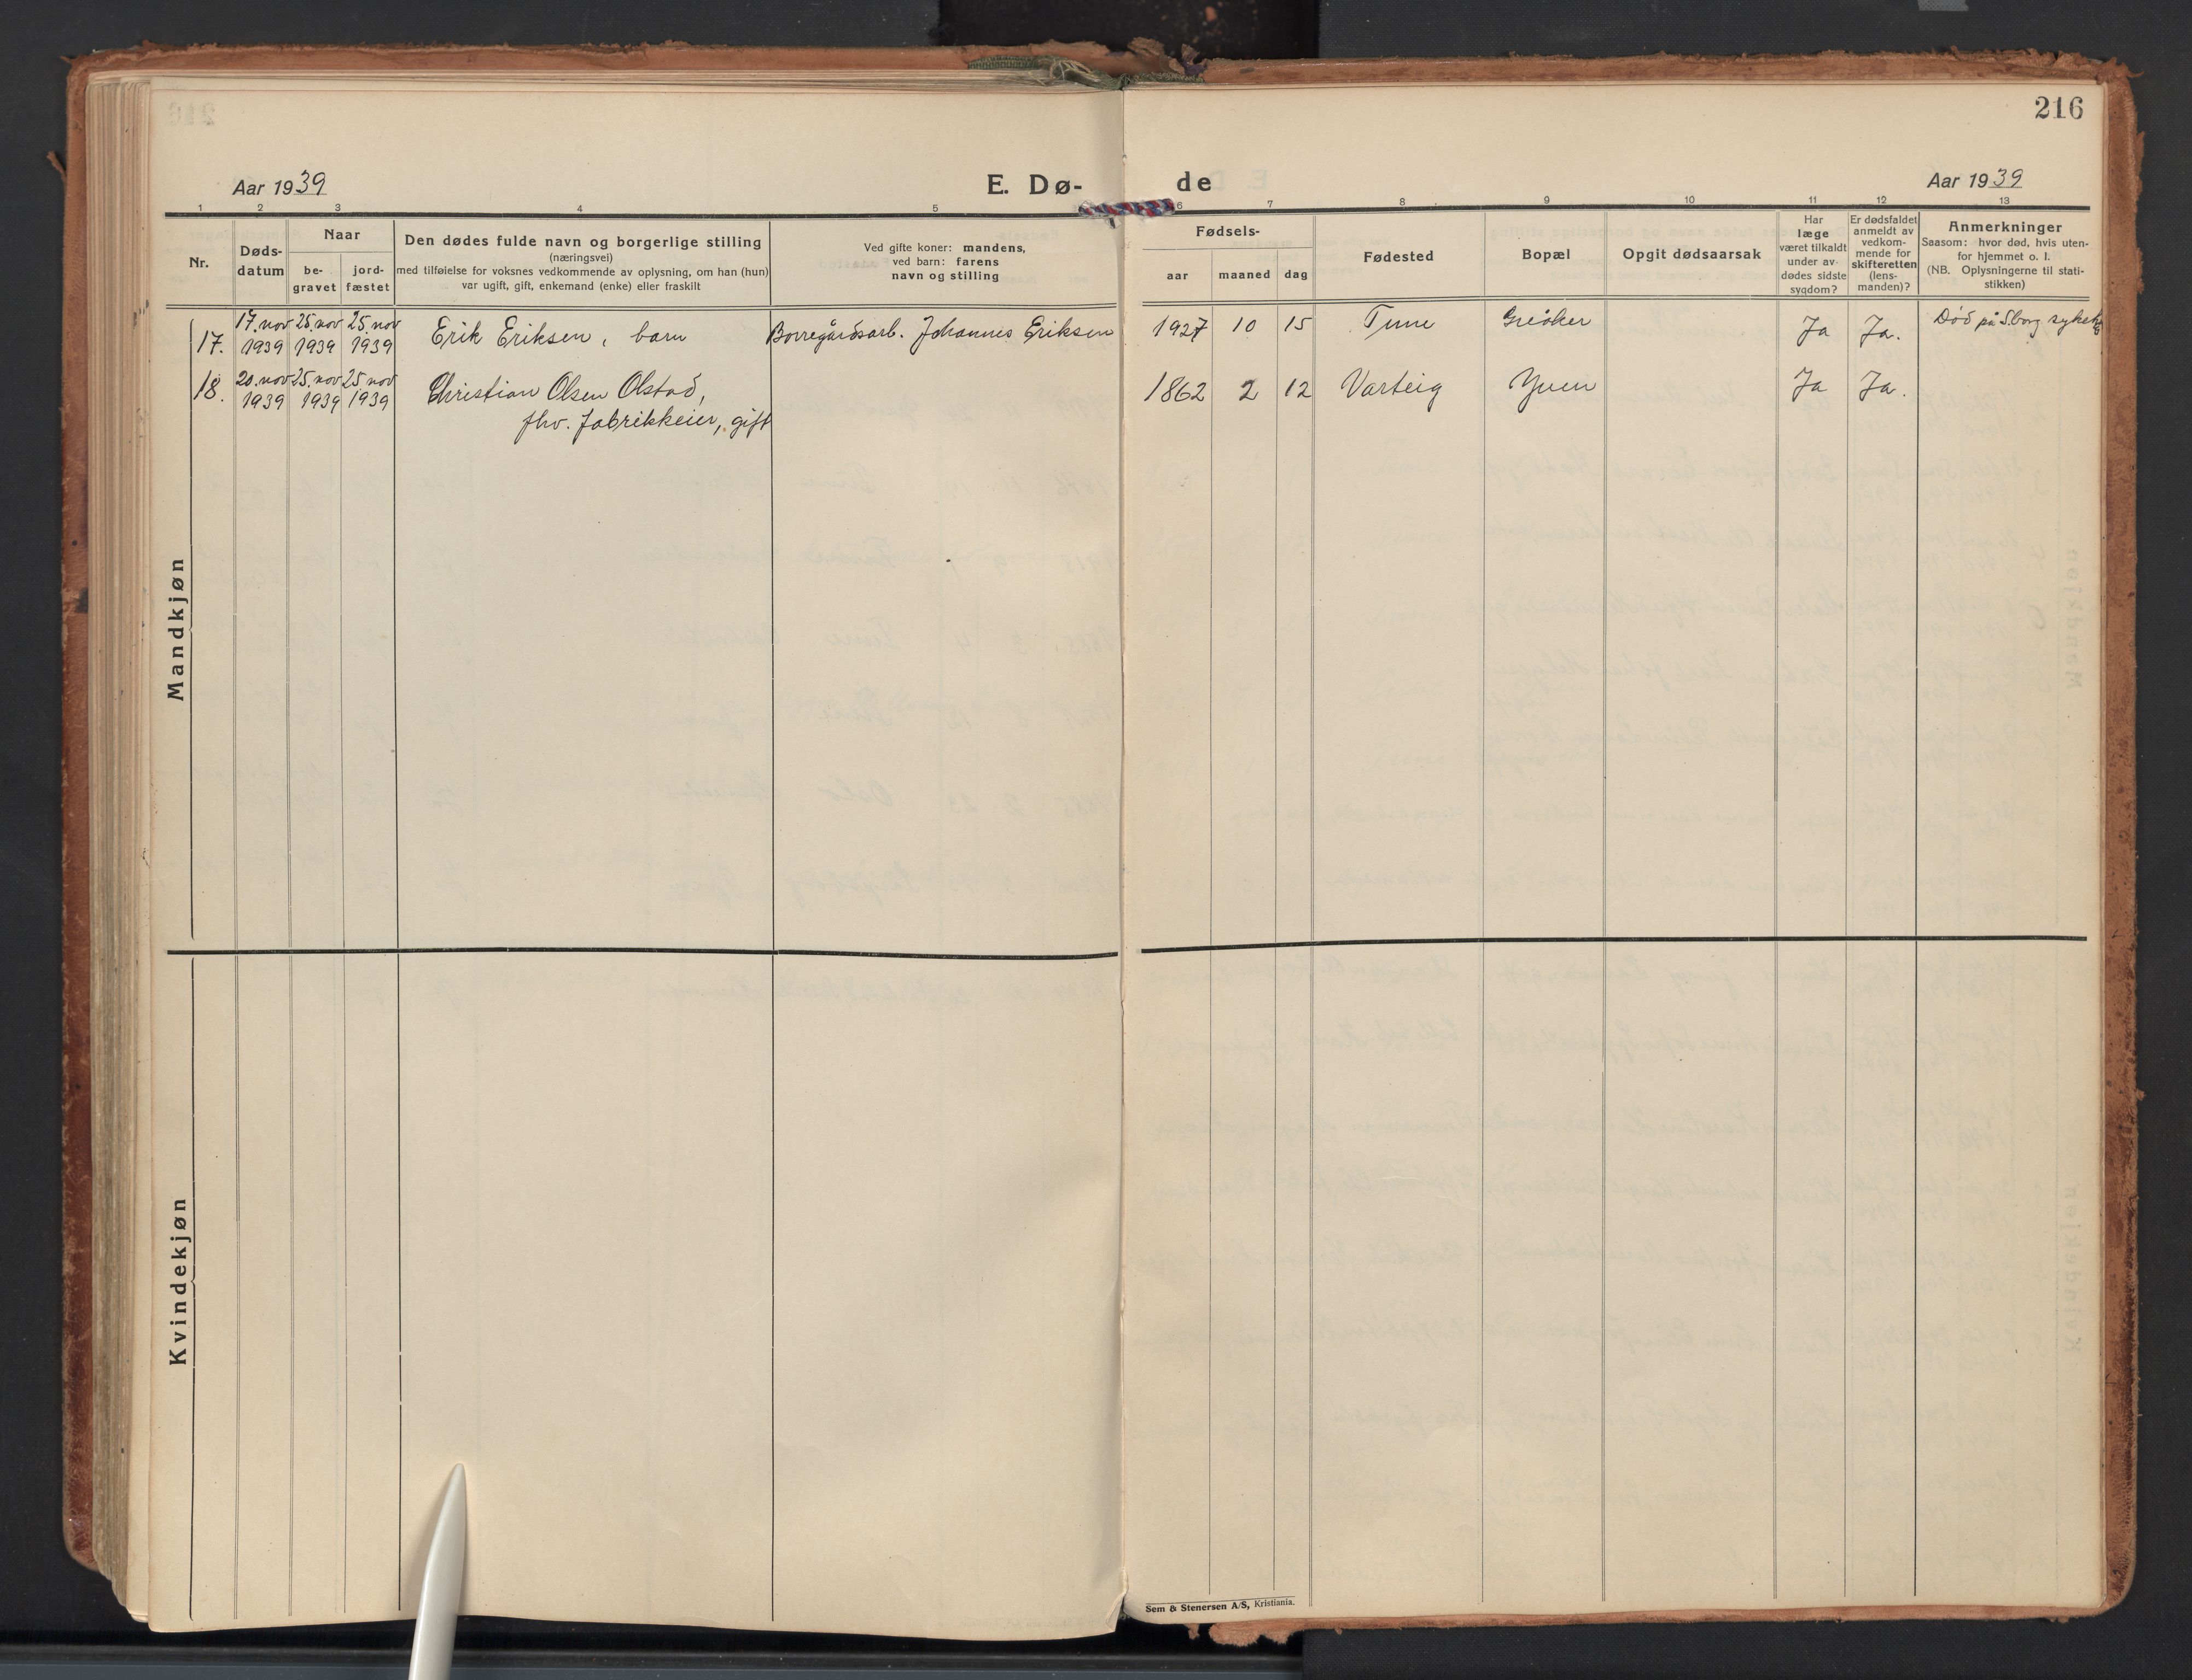 216
Aar 1939
E. Dø-
de
Aar 1939
1 2 3 4 5 6 7 8 9 10 11 12 13
Nr.
Døds-
datum
Naar
be-
gravet
jord-
fæstet
Den dødes fulde navn og borgerlige stilling
(næringsvei)
med tilføielse for voksnes vedkommende av oplysning, om han (hun)
var ugift, gift, enkemand (enke) eller fraskilt
Ved gifte koner: mandens,
ved barn: farens
navn og stilling
Fødsels-
aar
maaned
dag
Fødested
Bopæl
Opgit dødsaarsak
Har
læge
været tilkaldt
under av-
dødes sidste
sygdom?
Er dødsfaldet
anmeldt av
vedkom-
mende for
skifteretten
(lens-
manden)?
Anmerkninger
Saasom: hvor død, hvis uten-
for hjemmet o. l.
(NB. Oplysningerne til stati-
stikken)
Mandkjøn
17. 17. nov 1939 25. nov 1939 25. nov 1939 Erik Eriksen, barn Borregårdsarb. Johannes Eriksen 1927 10 15 Tune Greåker Ja Ja. Død på S.borg sykehs
18. 20. nov 1939 25. nov 1939 25. nov 1939 Christian Olsen Olstad, 1862 2 12 Varteig Yven Ja Ja.
fhv. fabrikkeier, gift
Kvindekjøn
Sem & Stenersen A/S, Kristiania.